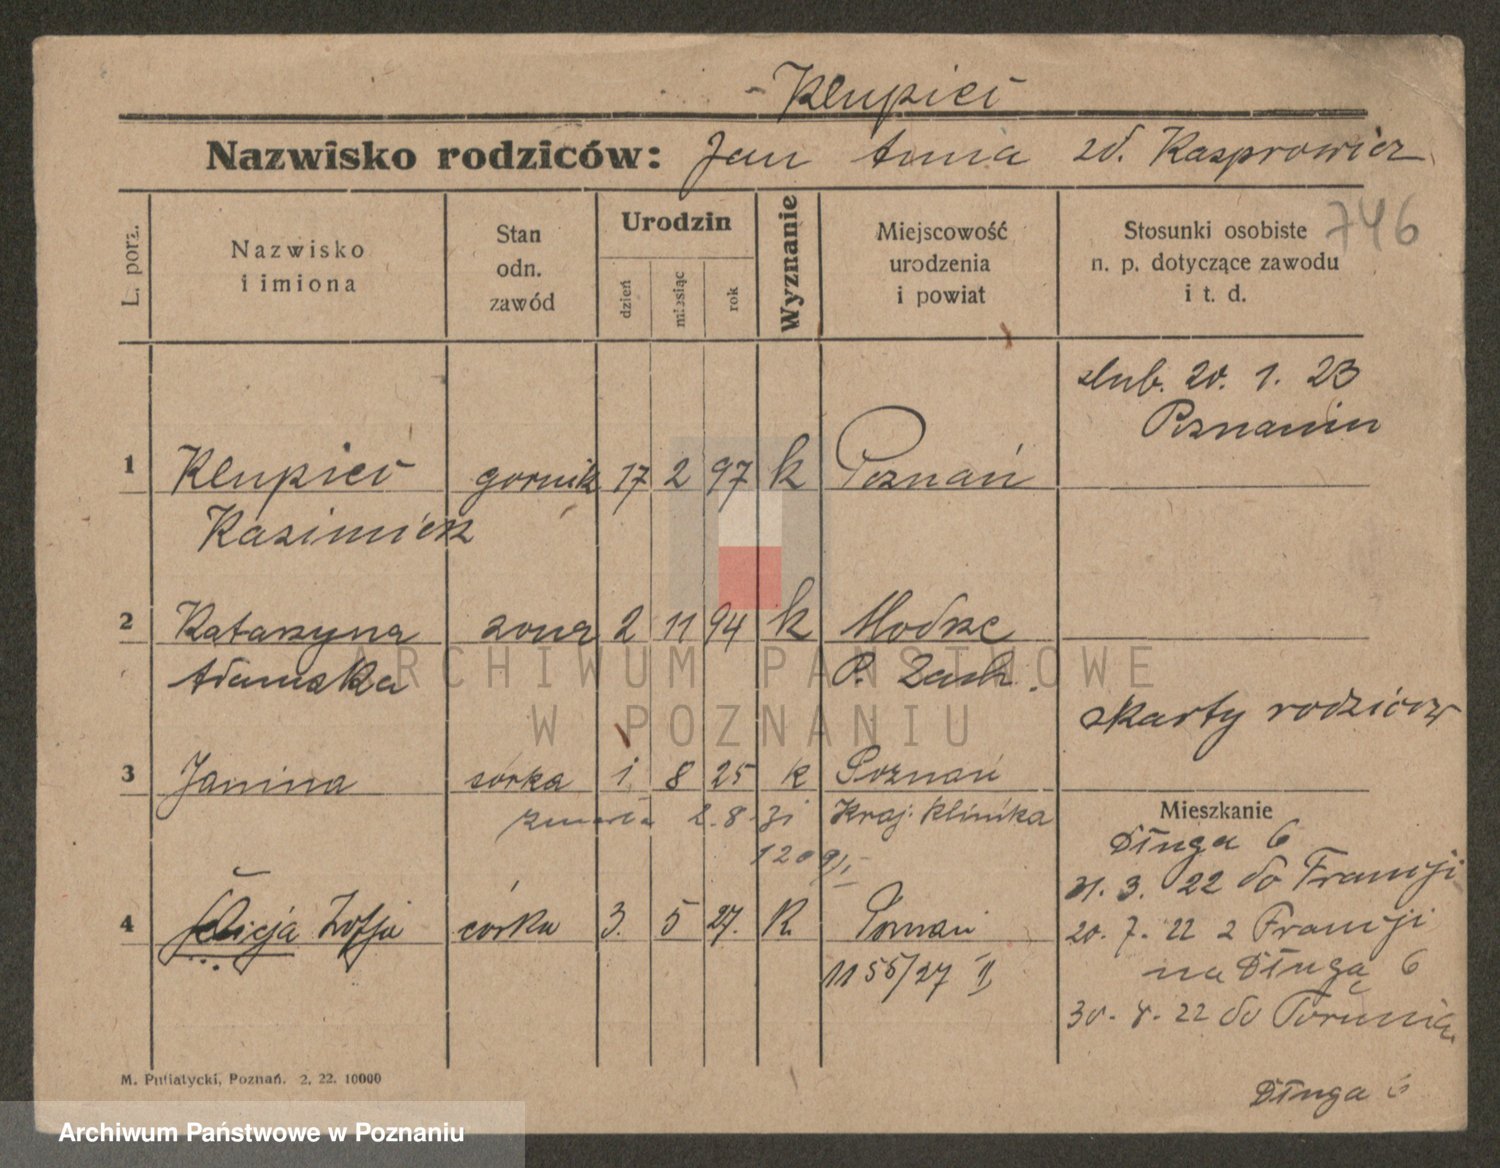 Klupieć
Nazwisko rodziców: Jan Anna zd. Kasprowicz
746
L. porz.
Nazwisko i imiona
Stan odn. zawód
Urodzin
dzień
miesiąc
rok
Wyznanie
Miejscowość urodzenia i powiat
Stosunki osobiste n. p. dotyczące zawodu i t. d.
slub. 20. 1. 23
Poznaniu
1 Klupieć gornik 17 2 97 k Poznań
Kazimierz
2 Katarzyna zona 2 11 94 k Modrze
Adamska P. Zach.
z karty rodziców
3 Janina córka 1 8 25 k Poznań
zmarła 2.8.31 Kraj. Klinika
1209/
Mieszkanie
Długa 6
31. 3. 22 do Francji
4 Felicja Zofja córka 3. 5 27. K. Poznań
20. 7. 22 z Francji
1155/27 II
na Długą 6
30. 8. 22 do Torunia
Długa 6
M. Putiatycki, Poznań. 2. 22. 10000
ARCHIWUM PAŃSTWOWE
W POZNANIU
Archiwum Państwowe w Poznaniu